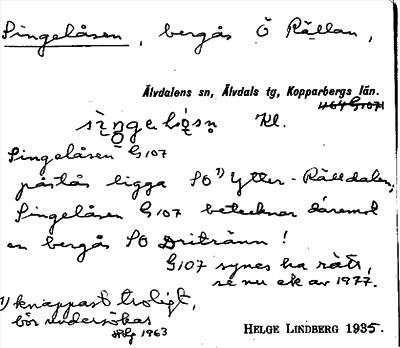 Singelåsen, bergås Ö Rällan,
Älvdalens sn, Älvdals tg, Kopparbergs län.
Kl.
Singelåsen G107
påstås ligga SO ¹) Ytter-Rälldalen,
Singelåsen G107 betecknar däremot
en bergås SO Dritränn!
G107 synes ha rätt,
se nu ek av 1977.
¹) knappast troligt,
bör undersökas
Hlg 1963
HELGE LINDBERG 1935.